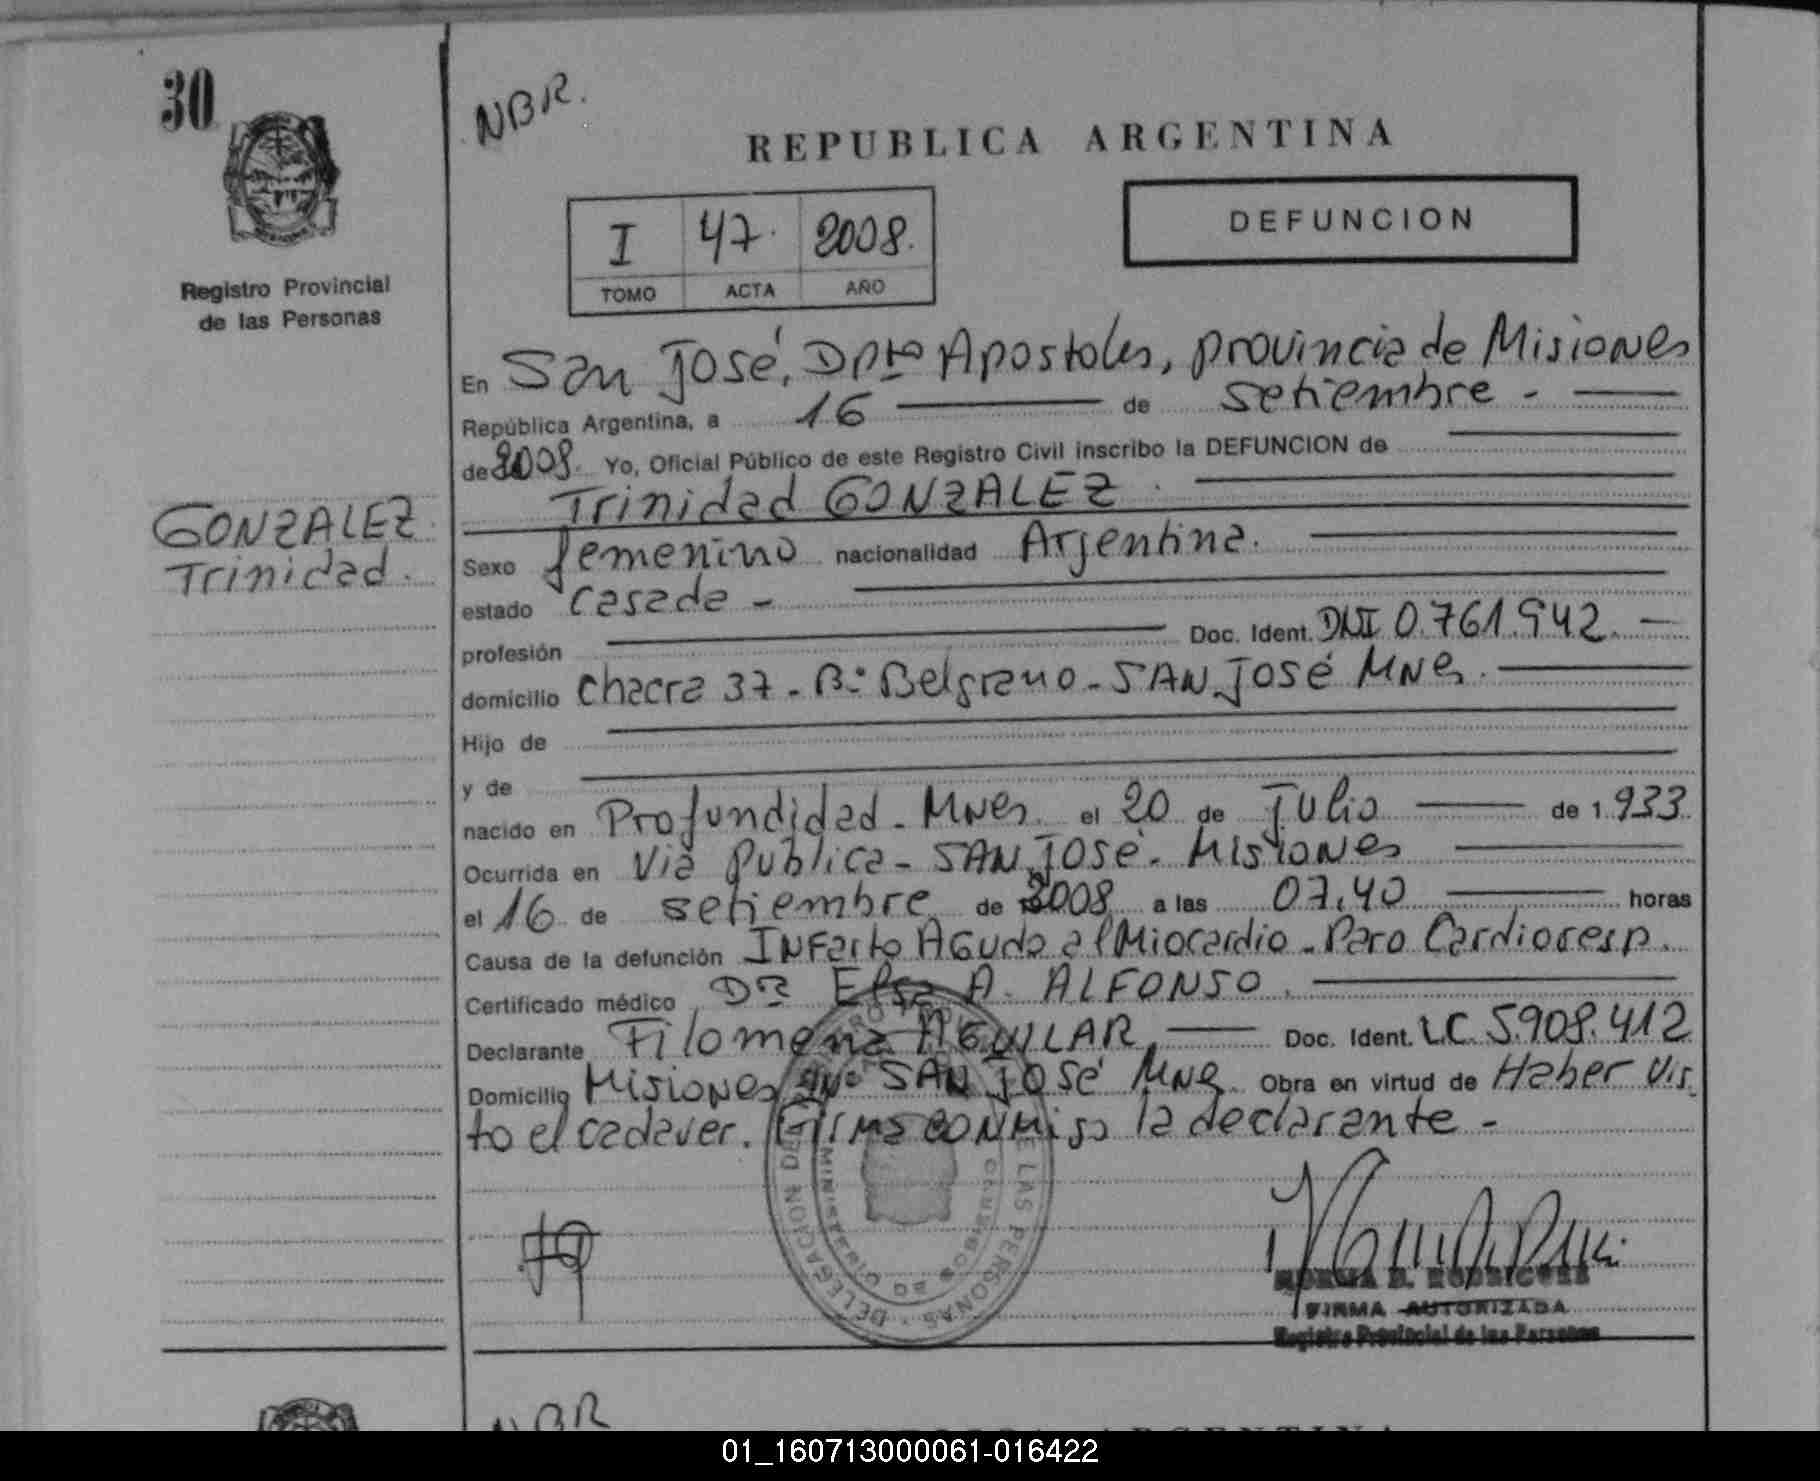 30
NBR.
REPUBLICA ARGENTINA
I 47. 2008.
TOMO ACTA AÑO
DEFUNCION
Registro Provincial
de las Personas
GONZALEZ
Trinidad.
En San José, Dpto Apostoles, provincia de Misiones
República Argentina, a 16 de setiembre -
de 2008. Yo, Oficial Público de este Registro Civil inscribo la DEFUNCION de
Trinidad GONZALEZ.
Sexo femenino nacionalidad Argentina.
estado casada -
profesión Doc. Ident. DNI 0.761.942. -
domicilio Chacra 37 - B: Belgrano - SAN JOSÉ MNES.
Hijo de
y de
nacido en Profundidad - MNES. el 20 de Julio de 1.933.
Ocurrida en Via Publica - SAN JOSÉ - Misiones
el 16 de setiembre de 2008 a las 07,40 horas
Causa de la defunción INFarto AGudo al Miocardio - Paro Cardioresp.
Certificado médico Dra Elsa A. ALFONSO.
Declarante Filomena AGUILAR Doc. Ident. LC 5.908.412
Domicilio Misiones SAN JOSÉ MNES Obra en virtud de Haber vis
to el cadaver. Firma conmigo la declarante -
DELEGACION DE LAS PERSONAS
MINISTERIO DE GOBIERNO
NORMA B. RODRIGUEZ
FIRMA AUTORIZADA
Registro Provincial de las Personas
NBR
REPUBLICA ARGENTINA
01_160713000061-016422